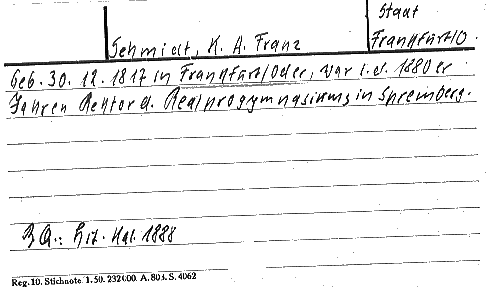 Staat
Schmidt, K. A. Franz
Frankfurt/O.
Geb. 30. 12. 1817 in Frankfurt/Oder, war i. d. 1880er
Jahren Rektor d. Realprogymnasiums in Spremberg.
BQ.: Lit. Kal. 1888
Reg. 10. Stichnote. 1. 50. 232400. A. 803. S. 4062